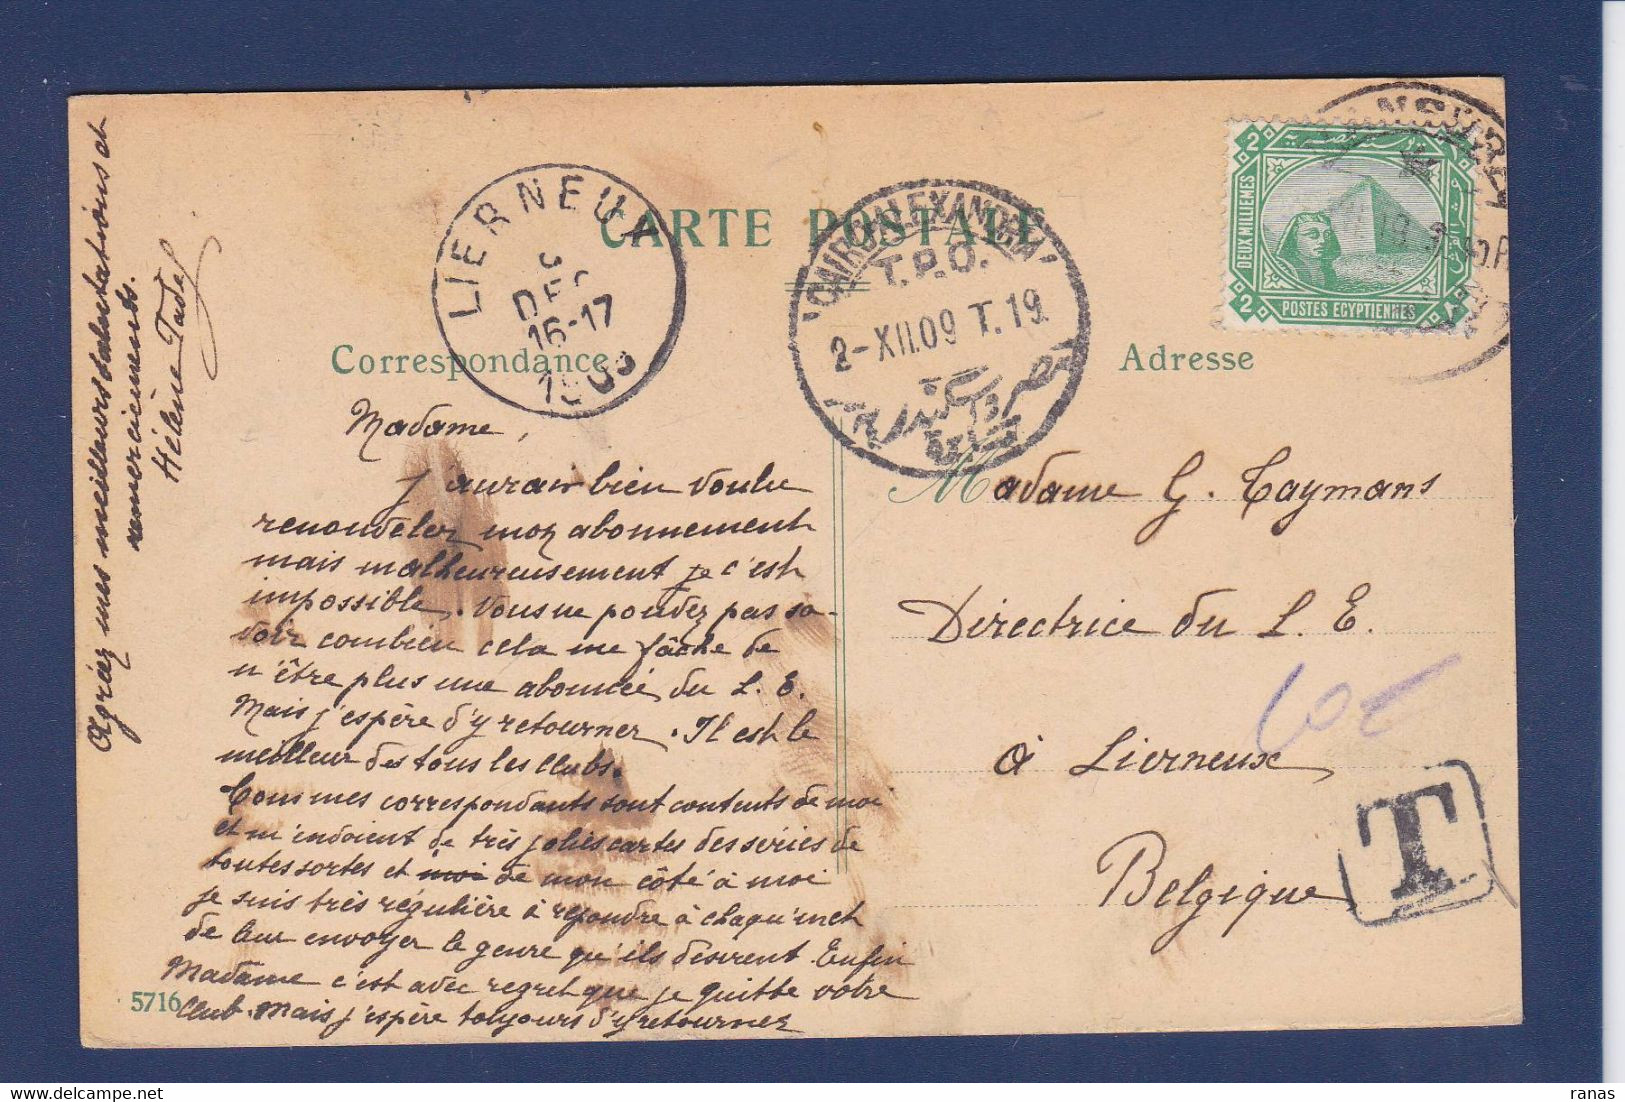 CARTE POSTALE
LIERNEUX
DEC
16-17
CAIRO-ALEXANDRIA
T.P.O.
2-XII.09 T.19.
2 2
DEUX MILLIEMES
2 POSTES EGYPTIENNES
Correspondance
Adresse
Madame,
j'aurais bien voulu
renouveler mon abonnement
mais malheureusement je c'est
impossible. Vous ne pouvez pas sa-
voir combien cela me fâche de
n'être plus une abonnée du L. E.
Mais j'espère d'y retourner. Il est le
meilleur des tous les Clubs.
Tous mes correspondants sont contents de moi
et m'envoient de très jolies cartes des séries de
toutes sortes et moi de mon côté à moi
je suis très régulière à répondre à chaqu'un et
de leur envoyer le genre qu'ils désirent. Enfin
Madame c'est avec regret que je quitte votre
Club. Mais j'espère toujours d'y retourner
Agréez mes meilleurs salutations et
remerciements.
Hélène Tadef
5716
Madame G. Taymans
Directrice du L. E.
à Lierneux
Belgique
T
ranas